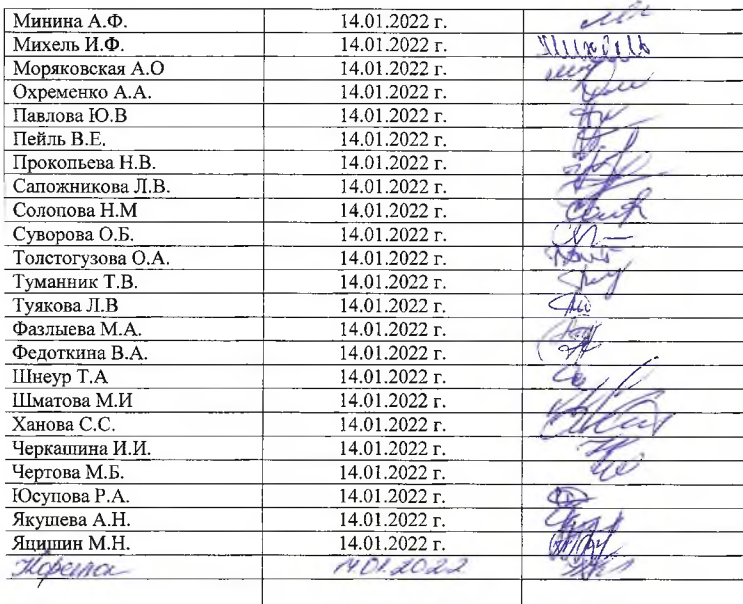 Минина А.Ф. 14.01.2022 г.
Михель И.Ф. 14.01.2022 г. Михель
Моряковская А.О 14.01.2022 г.
Охременко А.А. 14.01.2022 г.
Павлова Ю.В 14.01.2022 г.
Пейль В.Е. 14.01.2022 г.
Прокопьева Н.В. 14.01.2022 г.
Сапожникова Л.В. 14.01.2022 г.
Солопова Н.М 14.01.2022 г.
Суворова О.Б. 14.01.2022 г.
Толстогузова О.А. 14.01.2022 г.
Туманник Т.В. 14.01.2022 г.
Туякова Л.В 14.01.2022 г.
Фазлыева М.А. 14.01.2022 г.
Федоткина В.А. 14.01.2022 г.
Шнеур Т.А 14.01.2022 г.
Шматова М.И 14.01.2022 г.
Ханова С.С. 14.01.2022 г.
Черкашина И.И. 14.01.2022 г.
Чертова М.Б. 14.01.2022 г.
Юсупова Р.А. 14.01.2022 г.
Якушева А.Н. 14.01.2022 г.
Яцишин М.Н. 14.01.2022 г.
14.01.2022